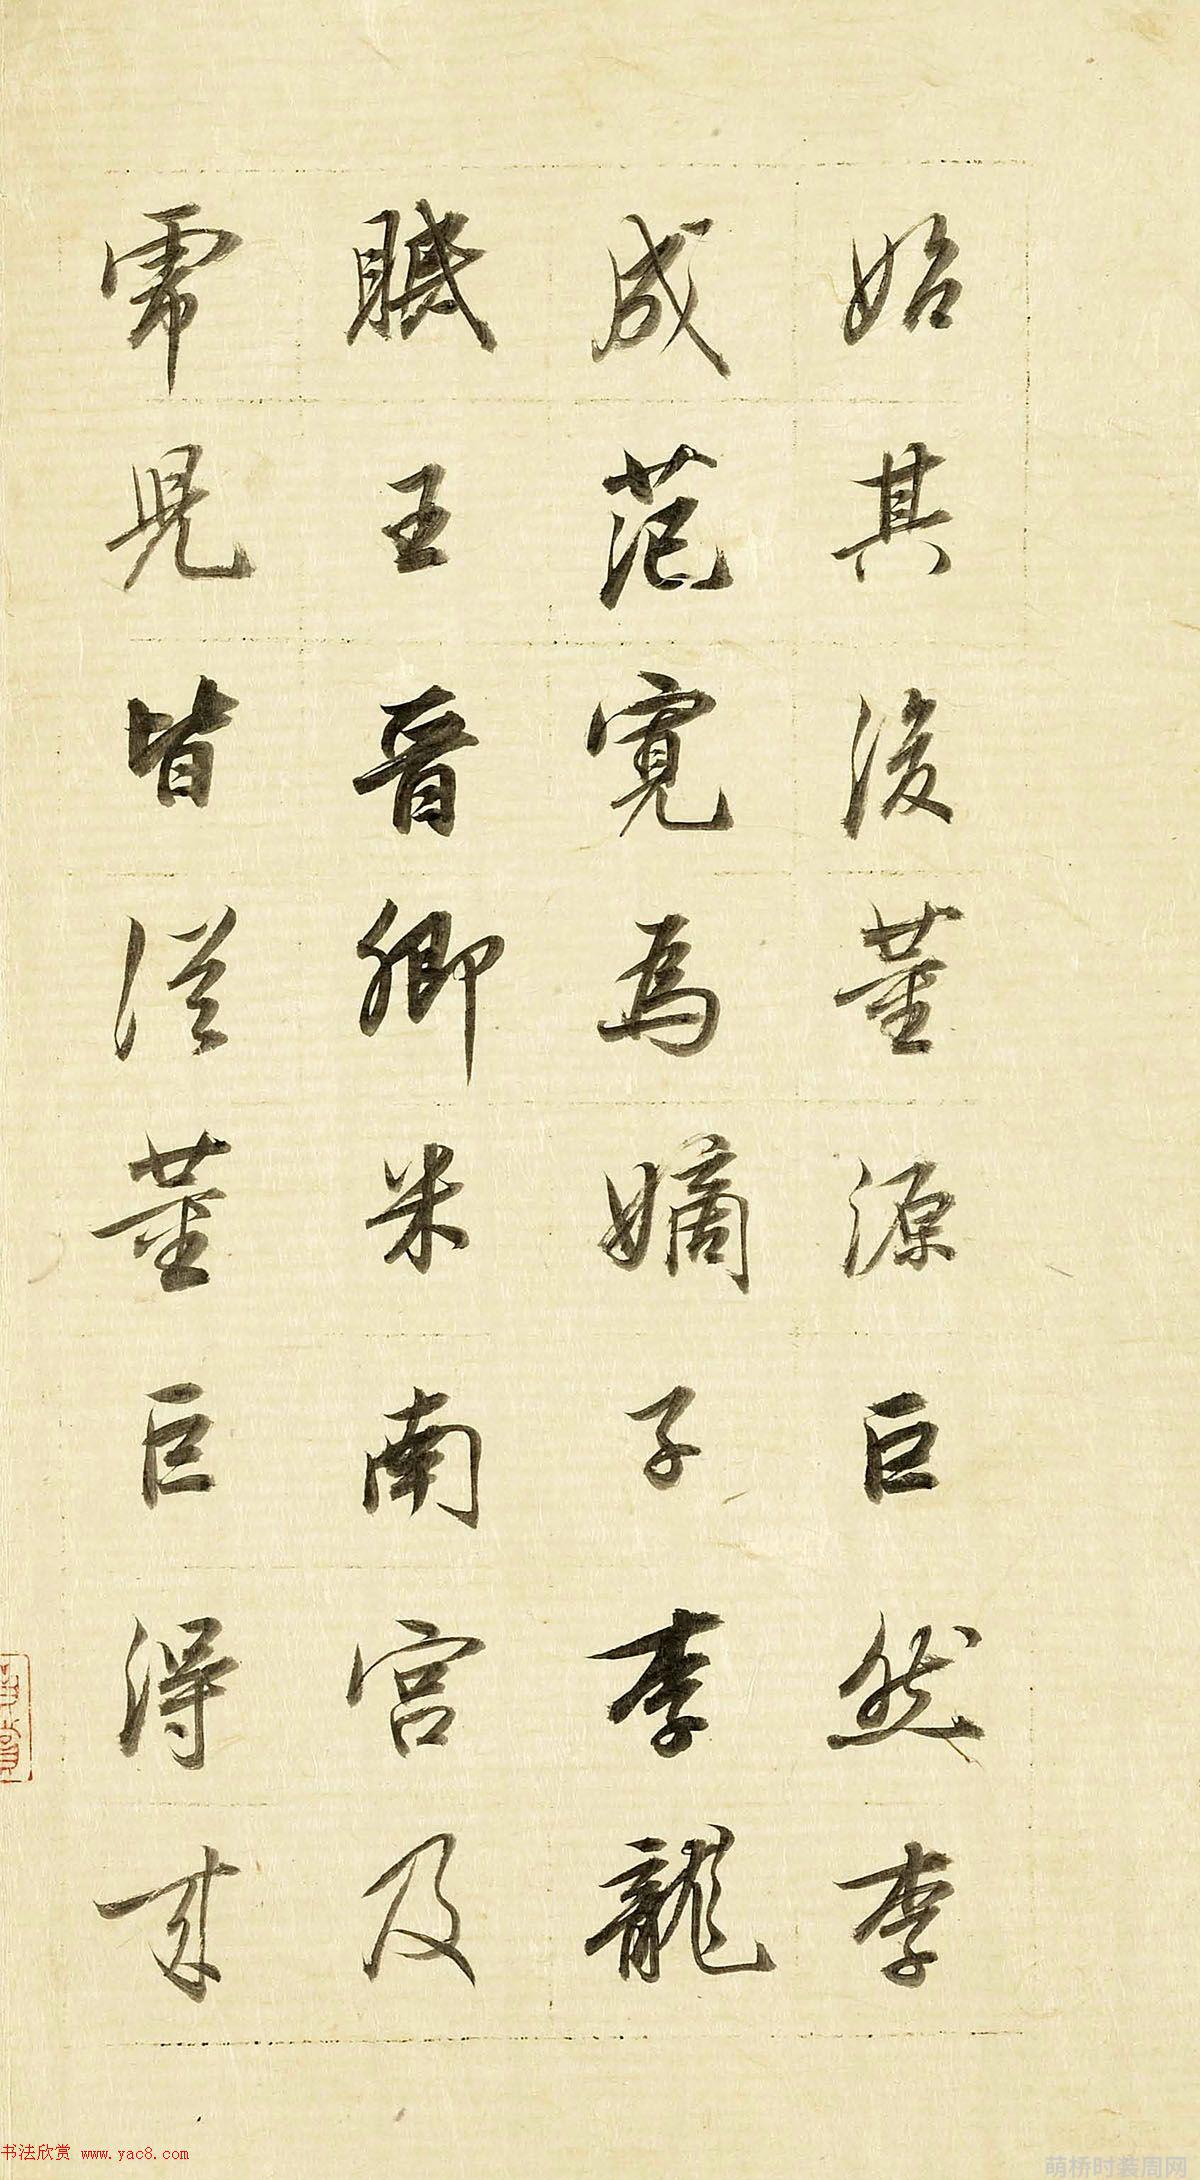 始其後董源巨然李
成范寬為嫡子李龍
眠王晋卿米南宫及
虎兒皆從董巨得来
书法欣赏 www.yac8.com
萌桥时装周网